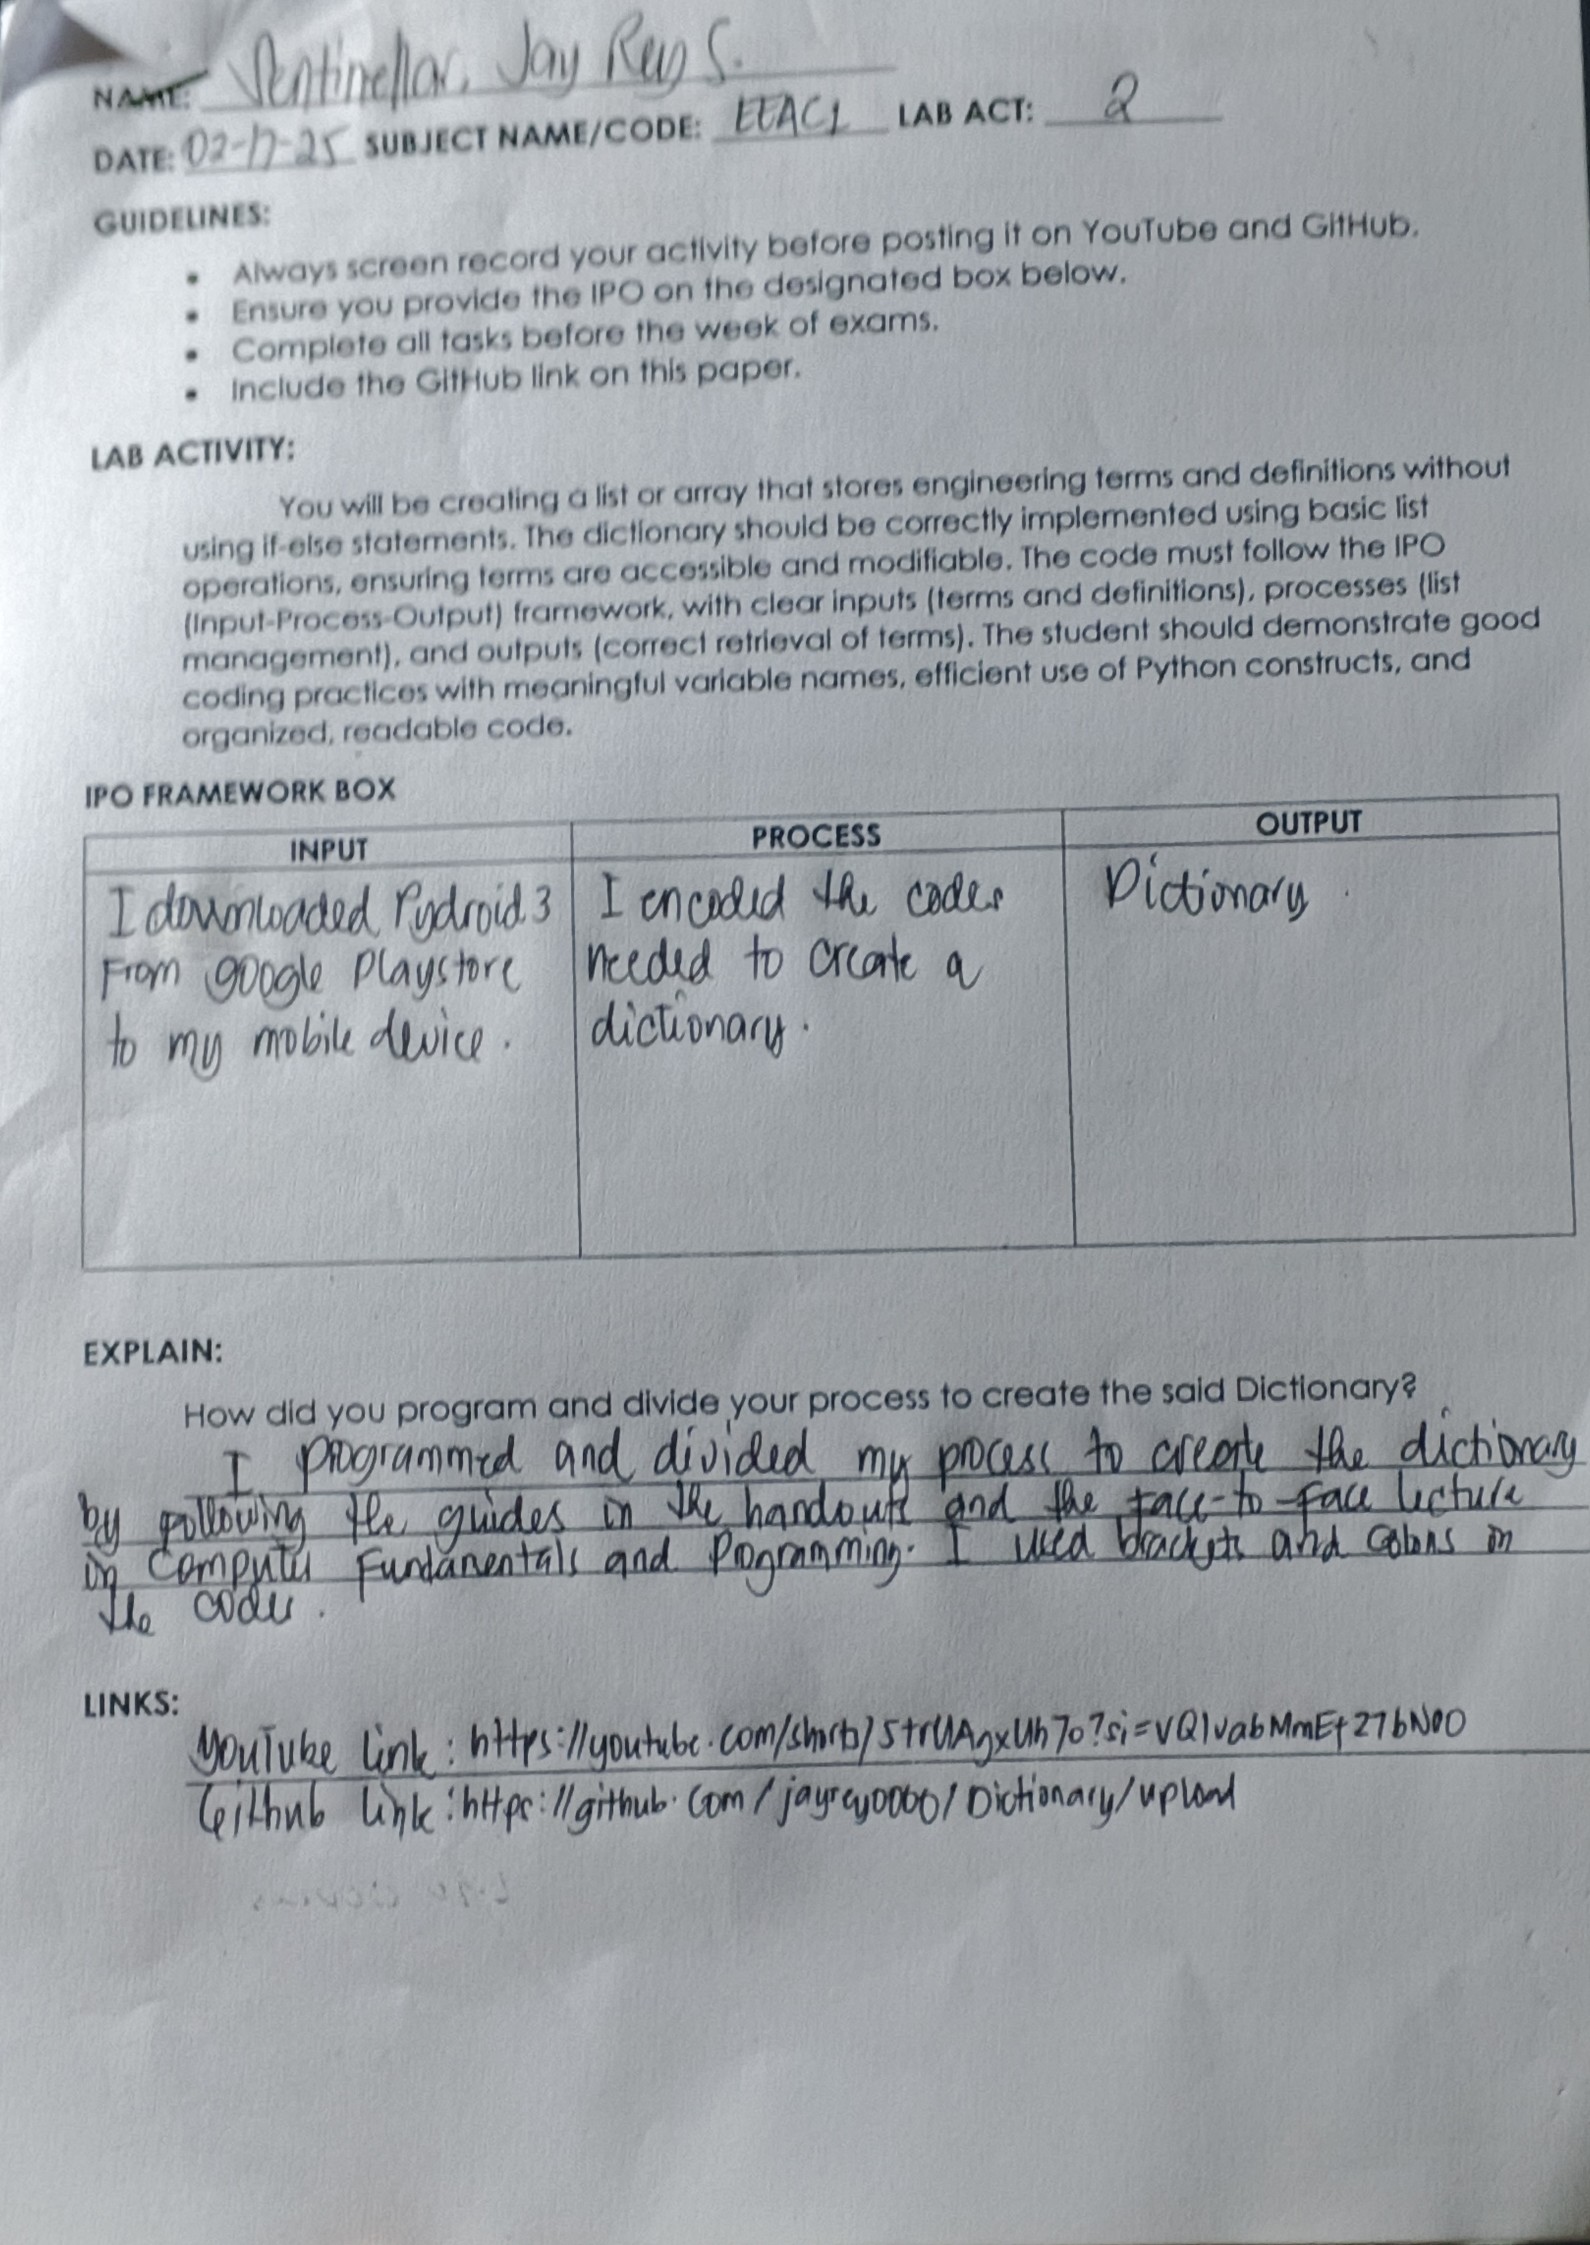 NAME: Sentinellar, Jay Rey S.
DATE: 02-17-25 SUBJECT NAME/CODE: EEAC1 LAB ACT: 2
GUIDELINES:
• Always screen record your activity before posting it on YouTube and GitHub.
• Ensure you provide the IPO on the designated box below.
• Complete all tasks before the week of exams.
• Include the GitHub link on this paper.
LAB ACTIVITY:
You will be creating a list or array that stores engineering terms and definitions without
using if-else statements. The dictionary should be correctly implemented using basic list
operations, ensuring terms are accessible and modifiable. The code must follow the IPO
(Input-Process-Output) framework, with clear inputs (terms and definitions), processes (list
management), and outputs (correct retrieval of terms). The student should demonstrate good
coding practices with meaningful variable names, efficient use of Python constructs, and
organized, readable code.
IPO FRAMEWORK BOX
INPUT
I downloaded Pydroid 3
From google Playstore
to my mobile device.
PROCESS
I encoded the codes
needed to create a
dictionary.
OUTPUT
Dictionary
EXPLAIN:
How did you program and divide your process to create the said Dictionary?
I programmed and divided my process to create the dictionary
by following the guides in the handouts and the face-to-face lecture
in Computer Fundamentals and Programming. I used brackets and colons in
the codes.
LINKS:
YouTube link: https://youtube.com/shorts/
Github link: https://github.com/jayrey0000/Dictionary/upload